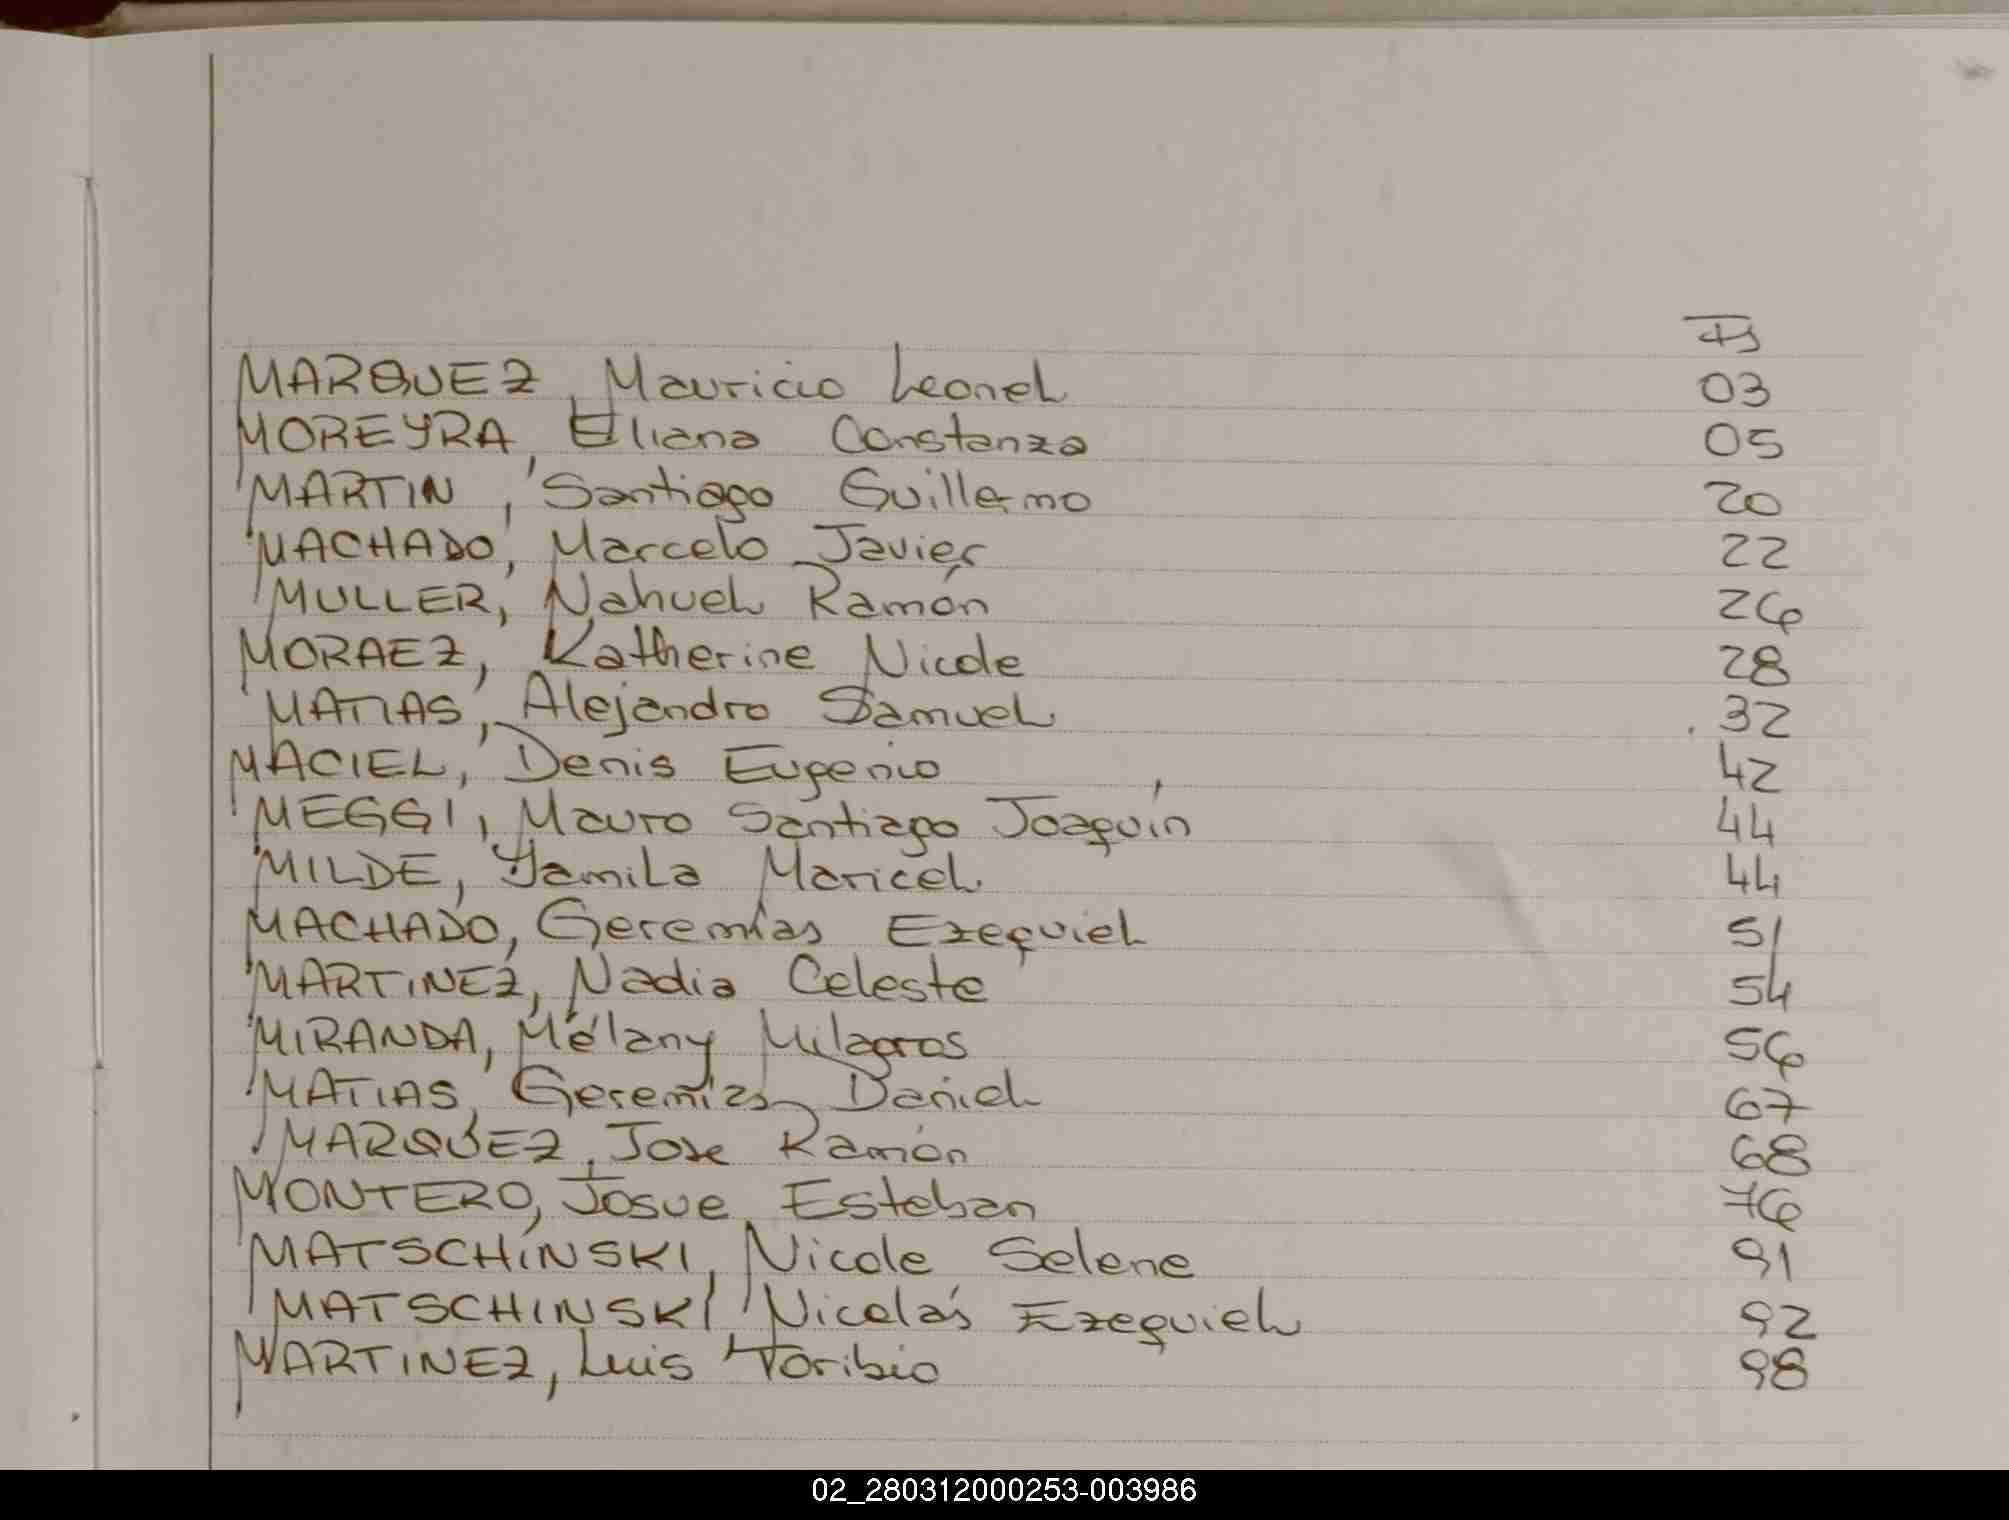 Fs
MARQUEZ, Mauricio Leonel 03
MOREYRA, Eliana Constanza 05
MARTIN, Santiago Guillermo 20
MACHADO, Marcelo Javier 22
MULLER, Nahuel Ramón 26
MORAEZ, Katherine Nicole 28
MATIAS, Alejandro Samuel 32
MACIEL, Denis Eugenio 42
MEGGI, Mauro Santiago Joaquín 44
MILDE, Yamila Maricel 44
MACHADO, Geremías Ezequiel 51
MARTINEZ, Nadia Celeste 54
MIRANDA, Mélany Milagros 56
MATIAS, Geremías Daniel 67
MARQUEZ, Jose Ramón 68
MONTERO, Josue Esteban 76
MATSCHINSKI, Nicole Selene 91
MATSCHINSKI Nicolás Ezequiel 92
MARTINEZ, Luis Toribio 98
02_280312000253-003986